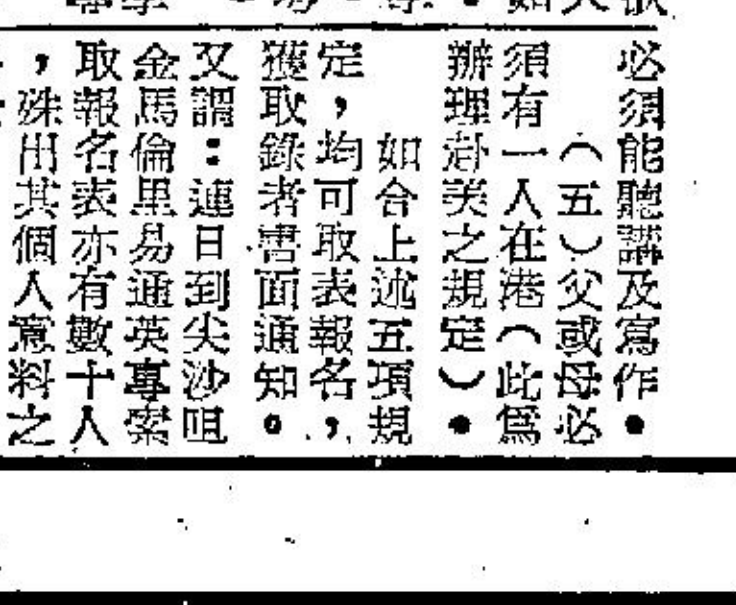 必須能聽講及寫作。
（五）父或母必
須有一人在港（此為
辦理赴美之規定）。
如合上述五項規
定，均可取表報名，
獲取錄者書面通知。
又謂：連日到尖沙咀
金馬倫里易通英專索
取報名表亦有數十人
，殊出其個人意料之